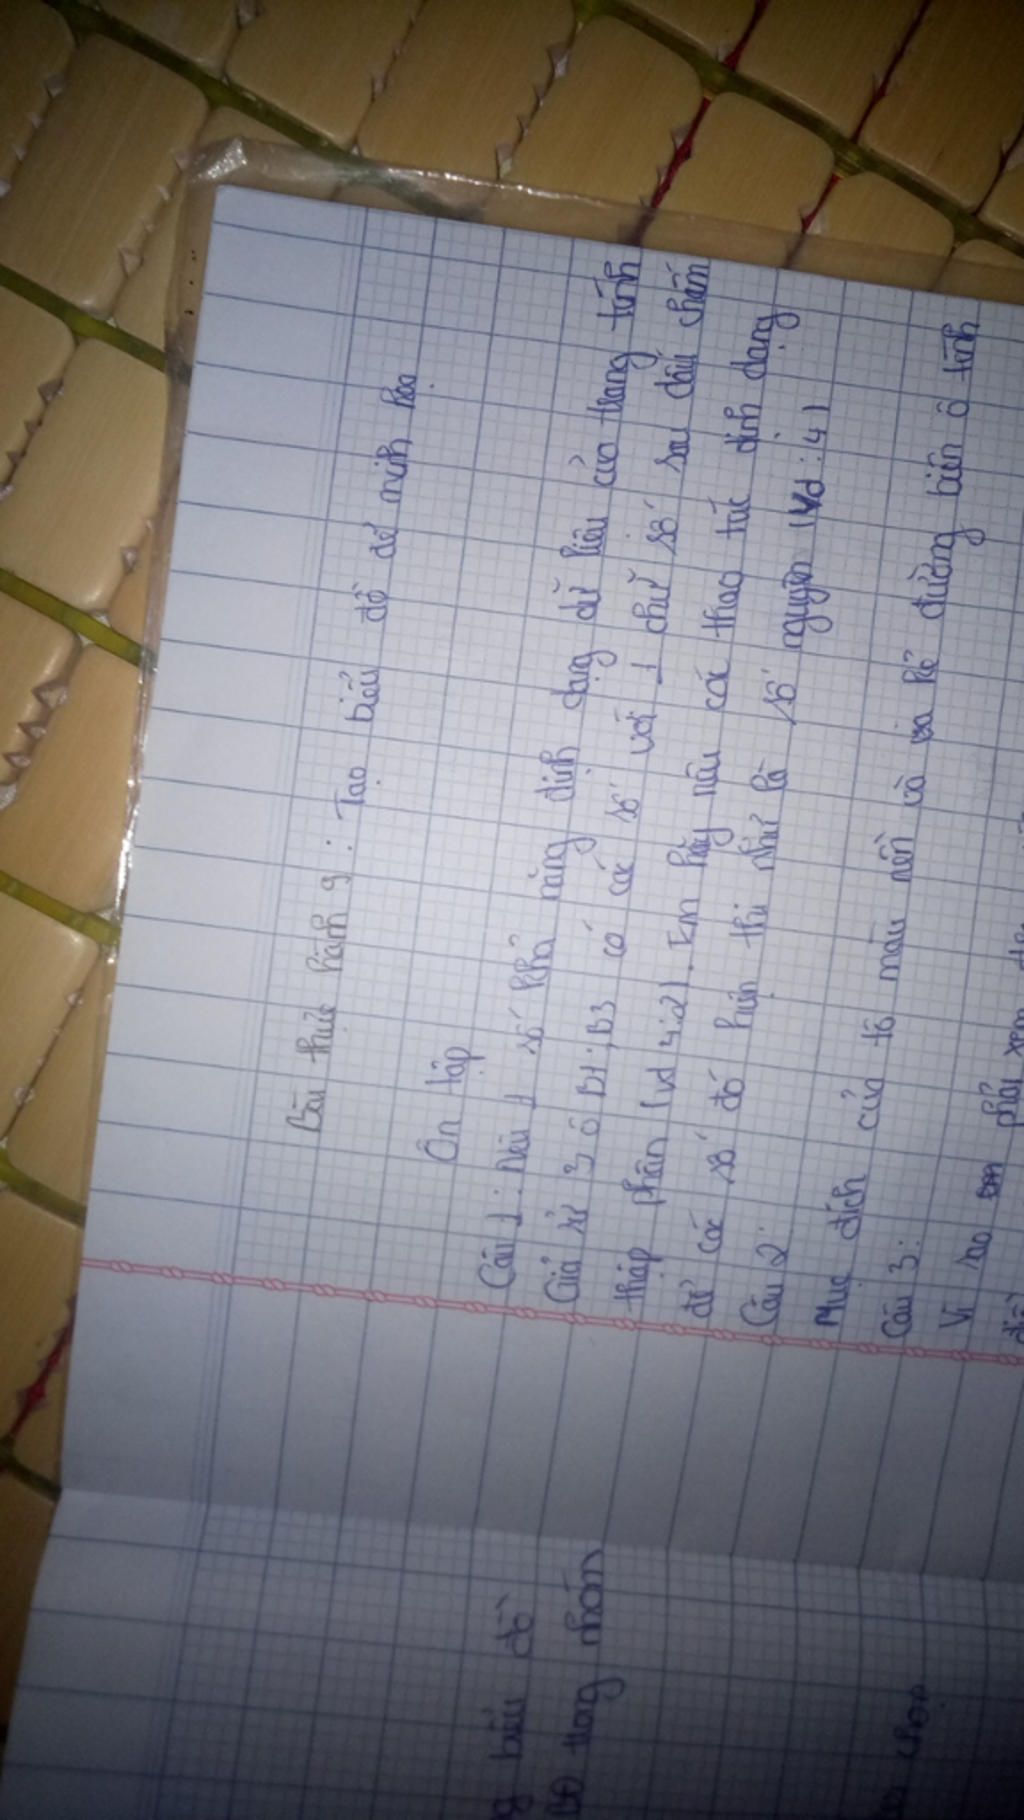 Bài thực hành 9 : Tạo biểu đồ để minh họa
Ôn tập
Câu 1 : Nêu 1 số khả năng định dạng dữ liệu của trang tính
Giả sử 3 ô B1 ; B3 có các số với 1 chữ số sau dấu chấm
thập phân (vd 4.2). Em hãy nêu các thao tác định dạng
để các số đó hiện thị như là số nguyên (Vd : 4)
Câu 2 :
Mục đích của tô màu nền và kẻ đường biên ô tính
Câu 3 :
Vì sao phải xem
biểu đồ
trong nhóm
chọn